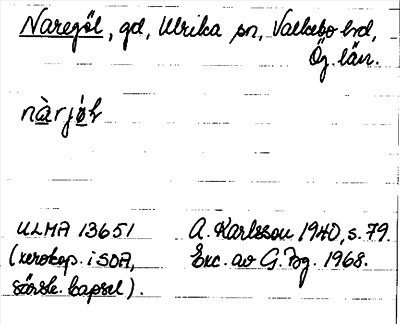 Naregöl, gd, Ulrika sn, Valkebo hd,
Ög. län.
nàrjø̀l
ULMA 13651
(xerokop. i SOA,
särsk. kapsel).
A. Karlsson 1940, s. 79.
Exc. av G. Fzg. 1968.